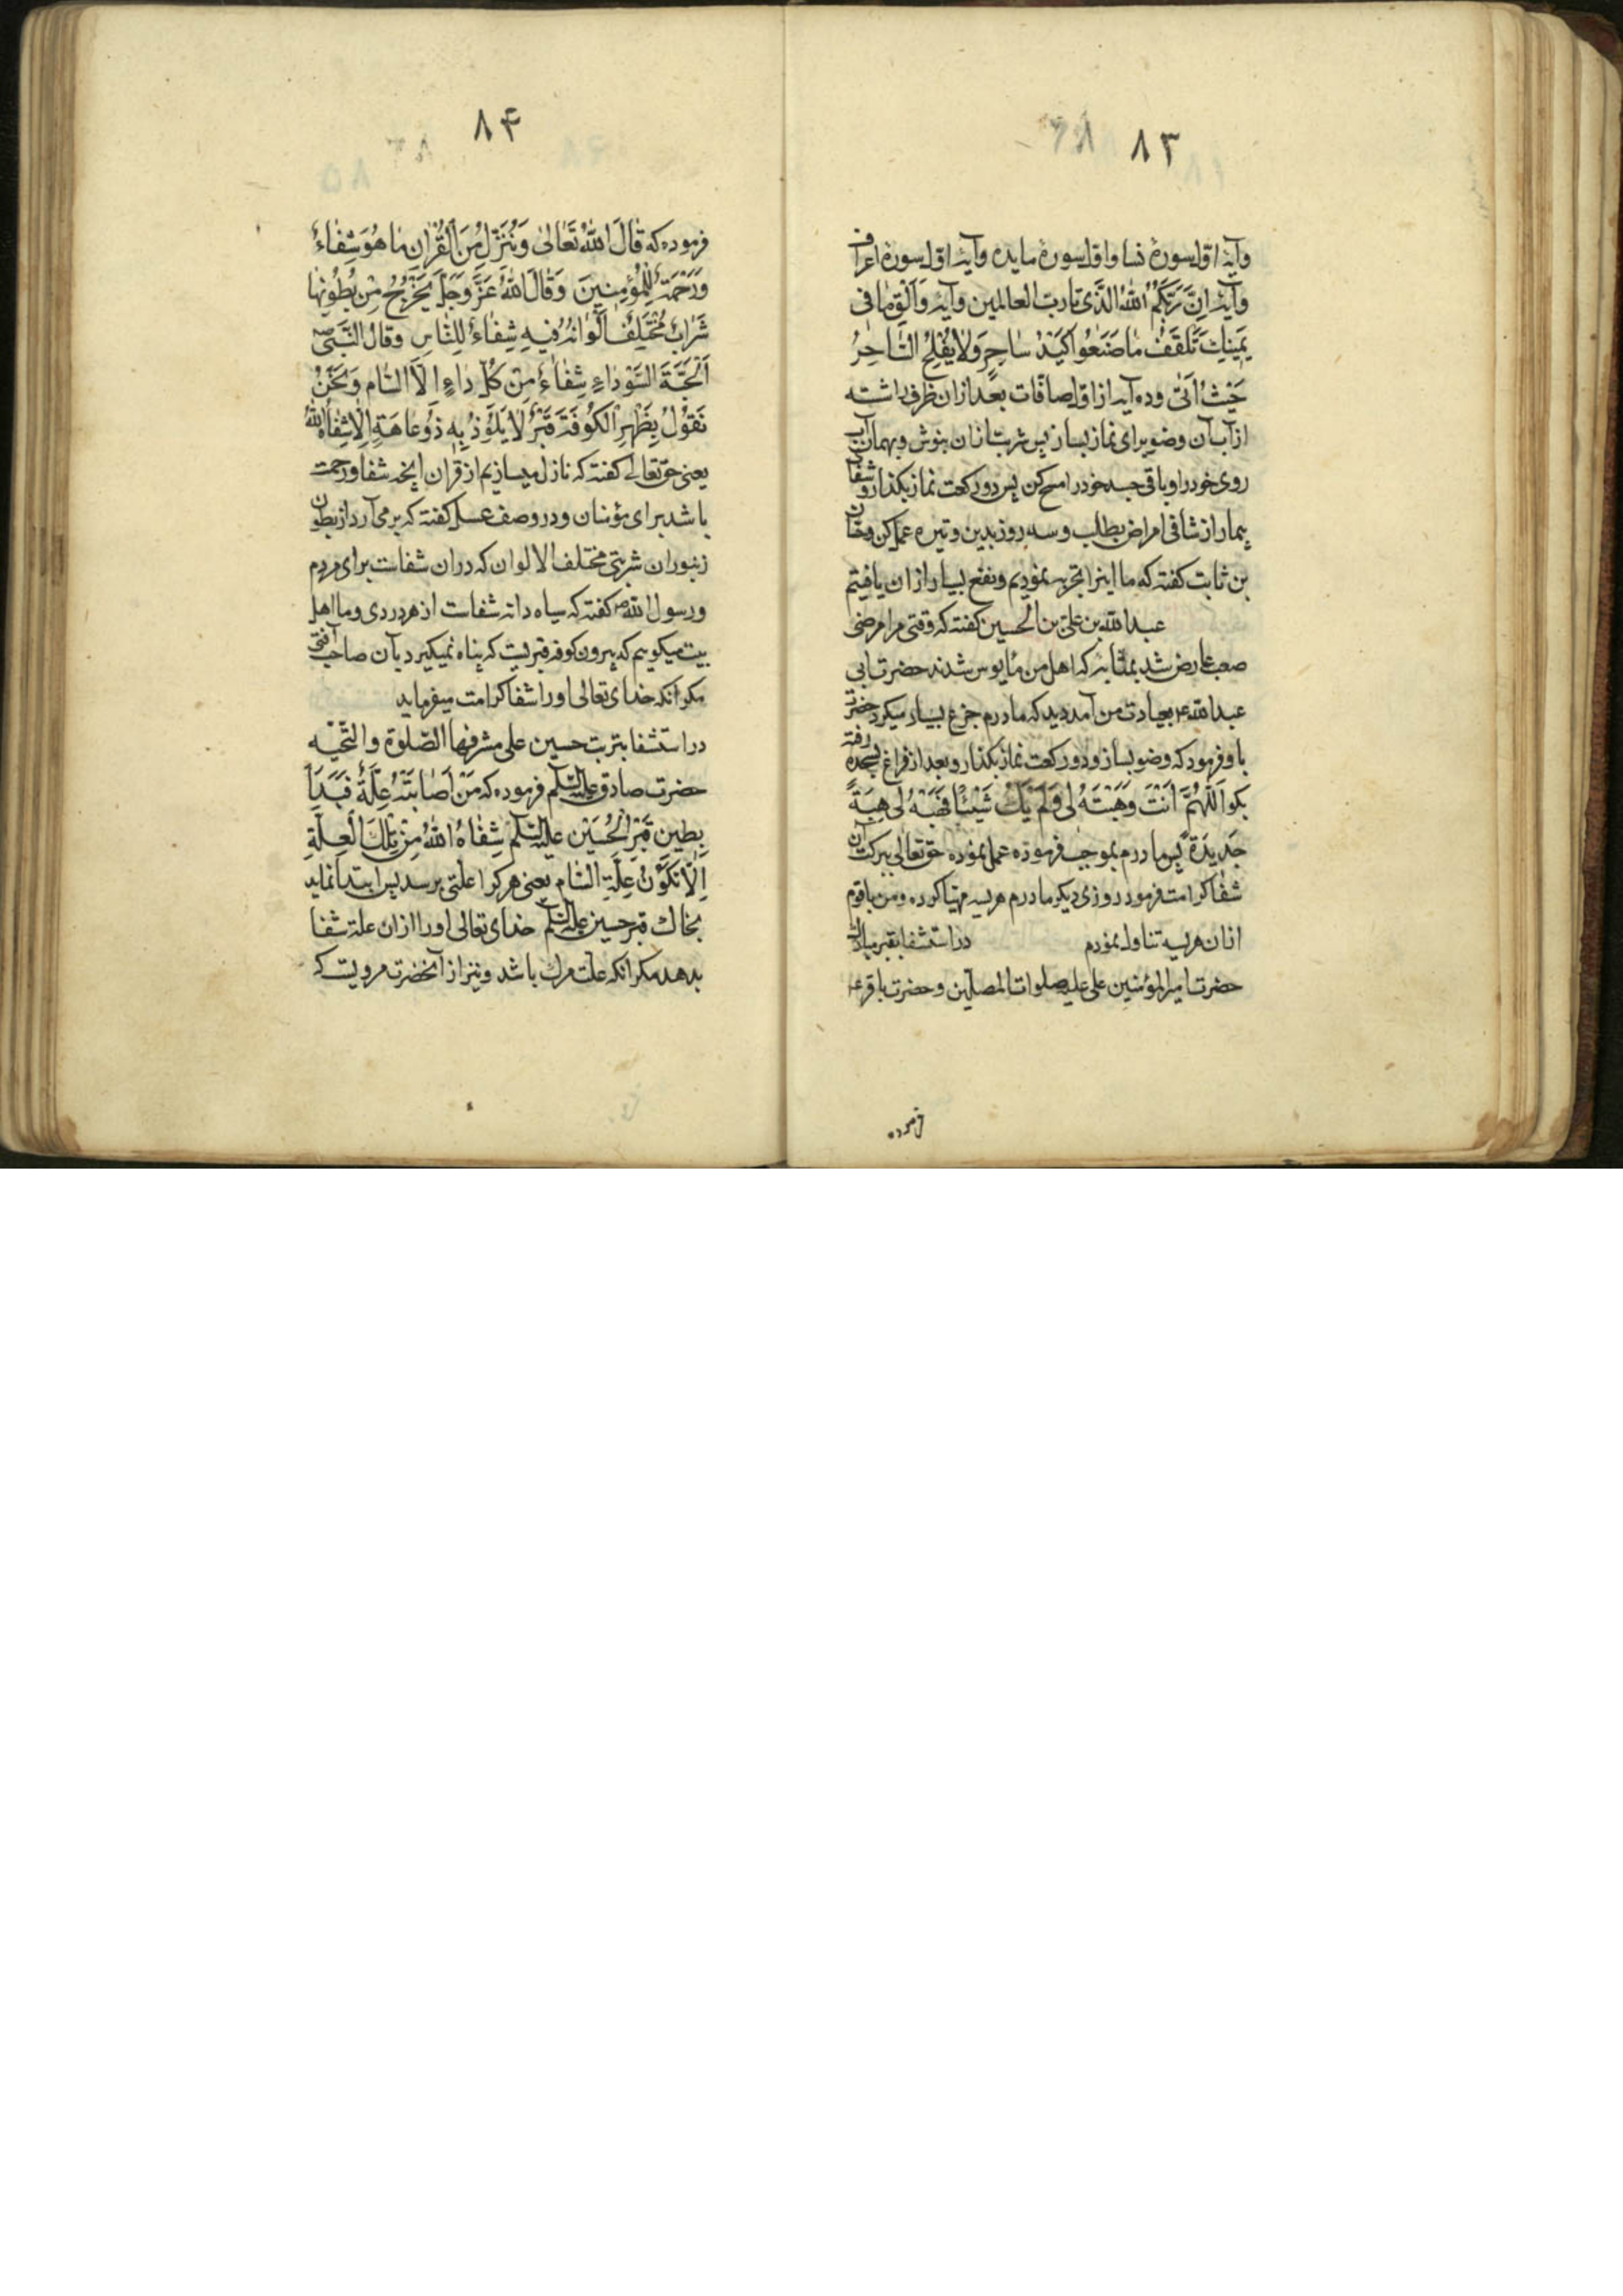 ٨٣
وآیة اول سورهٔ نسا واول سورهٔ مایده وآیة اول سورهٔ اعراف
وآیة اِنَّ رَبَّکُمُ اللّٰهُ الَّذی تا ربّ العالمین وآیة وَاَلْقِ مٰا فی
یَمینِكَ تَلْقَفْ مٰا صَنَعُوا کَیْدُ سٰاحِرٍ وَلٰا یُفْلِحُ السّٰاحِرُ
حَیْثُ اَتٰی وده آیة از اول صافّات بعد ازان ظرف داشته
از آب آن وضو برای نماز بساز پس شربتی ازان بنوش وبهمان آب
روی خود را وباقی جسد خود را مسح کن پس دو رکعت نماز بکذار وشفای
بیمار از شافی امراض بطلب وسه روز بدین وتیره عمل کن
بن ثابت کفته که ما اینرا تجربه نمودیم ونفع بسیار ازان یافتیم
عبدالله بن علی بن الحسین کفته که وقتی مرا مرضی
صعب عارض شد بمثابهٔ که اهل من مأیوس شدند حضرت ابی
عبدالله ع بعیادت من آمد دید که مادرم جزع بسیار میکرد حضرت
باو فرمود که وضو بساز ودو رکعت نماز بکذار وبعد از فراغ بسجده رفته
بکو اَللّٰهُمَّ اَنْتَ وَهَبْتَهُ لی وَلَمْ یَكُ شَیْئًا فَهَبْهُ لی هِبَةً
جَدیدَةً پس مادرم بموجب فرموده عمل نموده حق تعالی ببرکت آن
شفا کرامت فرمود روزی دیکر مادرم هریسه مهیّا کرده ومن با قوم
ازان هریسه تناول نمودم در استشفا بقبر مبارك
حضرت امیرالمؤمنین علی علیه صلوات المصلّین وحضرت باقر ع
فرموده
٨۴
فرموده که قٰالَ اللّٰهُ تَعٰالٰی وَنُنَزِّلُ مِنَ الْقُرْاٰنِ مٰا هُوَ شِفٰاءٌ
وَرَحْمَةٌ لِلْمُؤْمِنینَ وَقٰالَ اللّٰهُ عَزَّ وَجَلَّ یَخْرُجُ مِنْ بُطُونِهٰا
شَرٰابٌ مُخْتَلِفٌ اَلْوٰانُهُ فیهِ شِفٰاءٌ لِلنّٰاسِ وَقٰالَ النَّبِیُّ ص
اَلْحَبَّةُ السَّوْدٰاءُ شِفٰاءٌ مِنْ کُلِّ دٰاءٍ اِلَّا السّٰام وَنَحْنُ
نَقُولُ بِظَهْرِ الْکُوفَةِ قَبْرٌ لٰا یَلُوذُ بِهِ ذُو عٰاهَةٍ اِلّٰا شَفٰاهُ اللّٰهُ
یعنی حق تعالی کفته که نازل میسازیم از قرآن انچه شفا ورحمت
باشد برای مؤمنان ودر وصف عسل کفته که برمی آرد از بطون
زنبوران شربتی مختلف الالوان که دران شفاست برای مردم
ورسول الله ص کفته که سیاه دانه شفاست از هر دردی وما اهل
بیت میکوییم که بیرون کوفه قبریست که پناه نمیکیرد بآن صاحب آفتی
مکر آنکه خدای تعالی او را شفا کرامت میفرماید
در استشفا بتربت حسین علی مشرفها الصّلوة والتّحیّه
حضرت صادق علیه السّلم فرموده که مَنْ اَصٰابَتْهُ عِلَّةٌ فَبَدَأَ
بِطینِ قَبْرِ الْحُسَیْنِ علیه السّلم شَفٰاهُ اللّٰهُ مِنْ تِلْكَ الْعِلَّةِ
اِلّٰا اَنْ تَکُونَ عِلَّةَ السّٰام یعنی هر کرا علّتی برسد پس ابتدا نماید
بخاك قبر حسین علیه السّلم خدای تعالی او را ازان علة شفا
بدهد مکر آنکه علّت مرك باشد ونیز از آنحضرت مرویست که